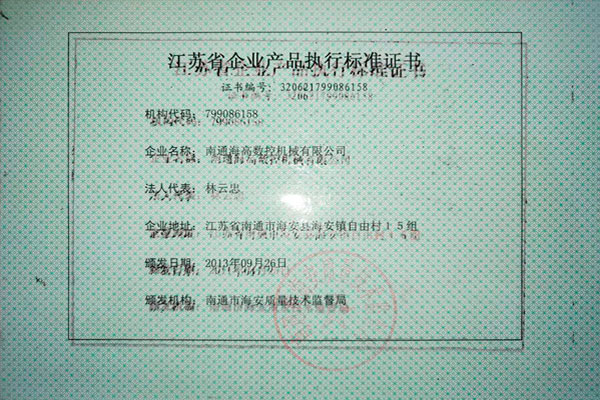 江苏省企业产品执行标准证书
证书编号：320621799086158
机构代码：799086158
企业名称：南通海高数控机械有限公司
法人代表：林云忠
企业地址：江苏省南通市海安县海安镇自由村15组
颁发日期：2013年09月26日
颁发机构：南通市海安质量技术监督局